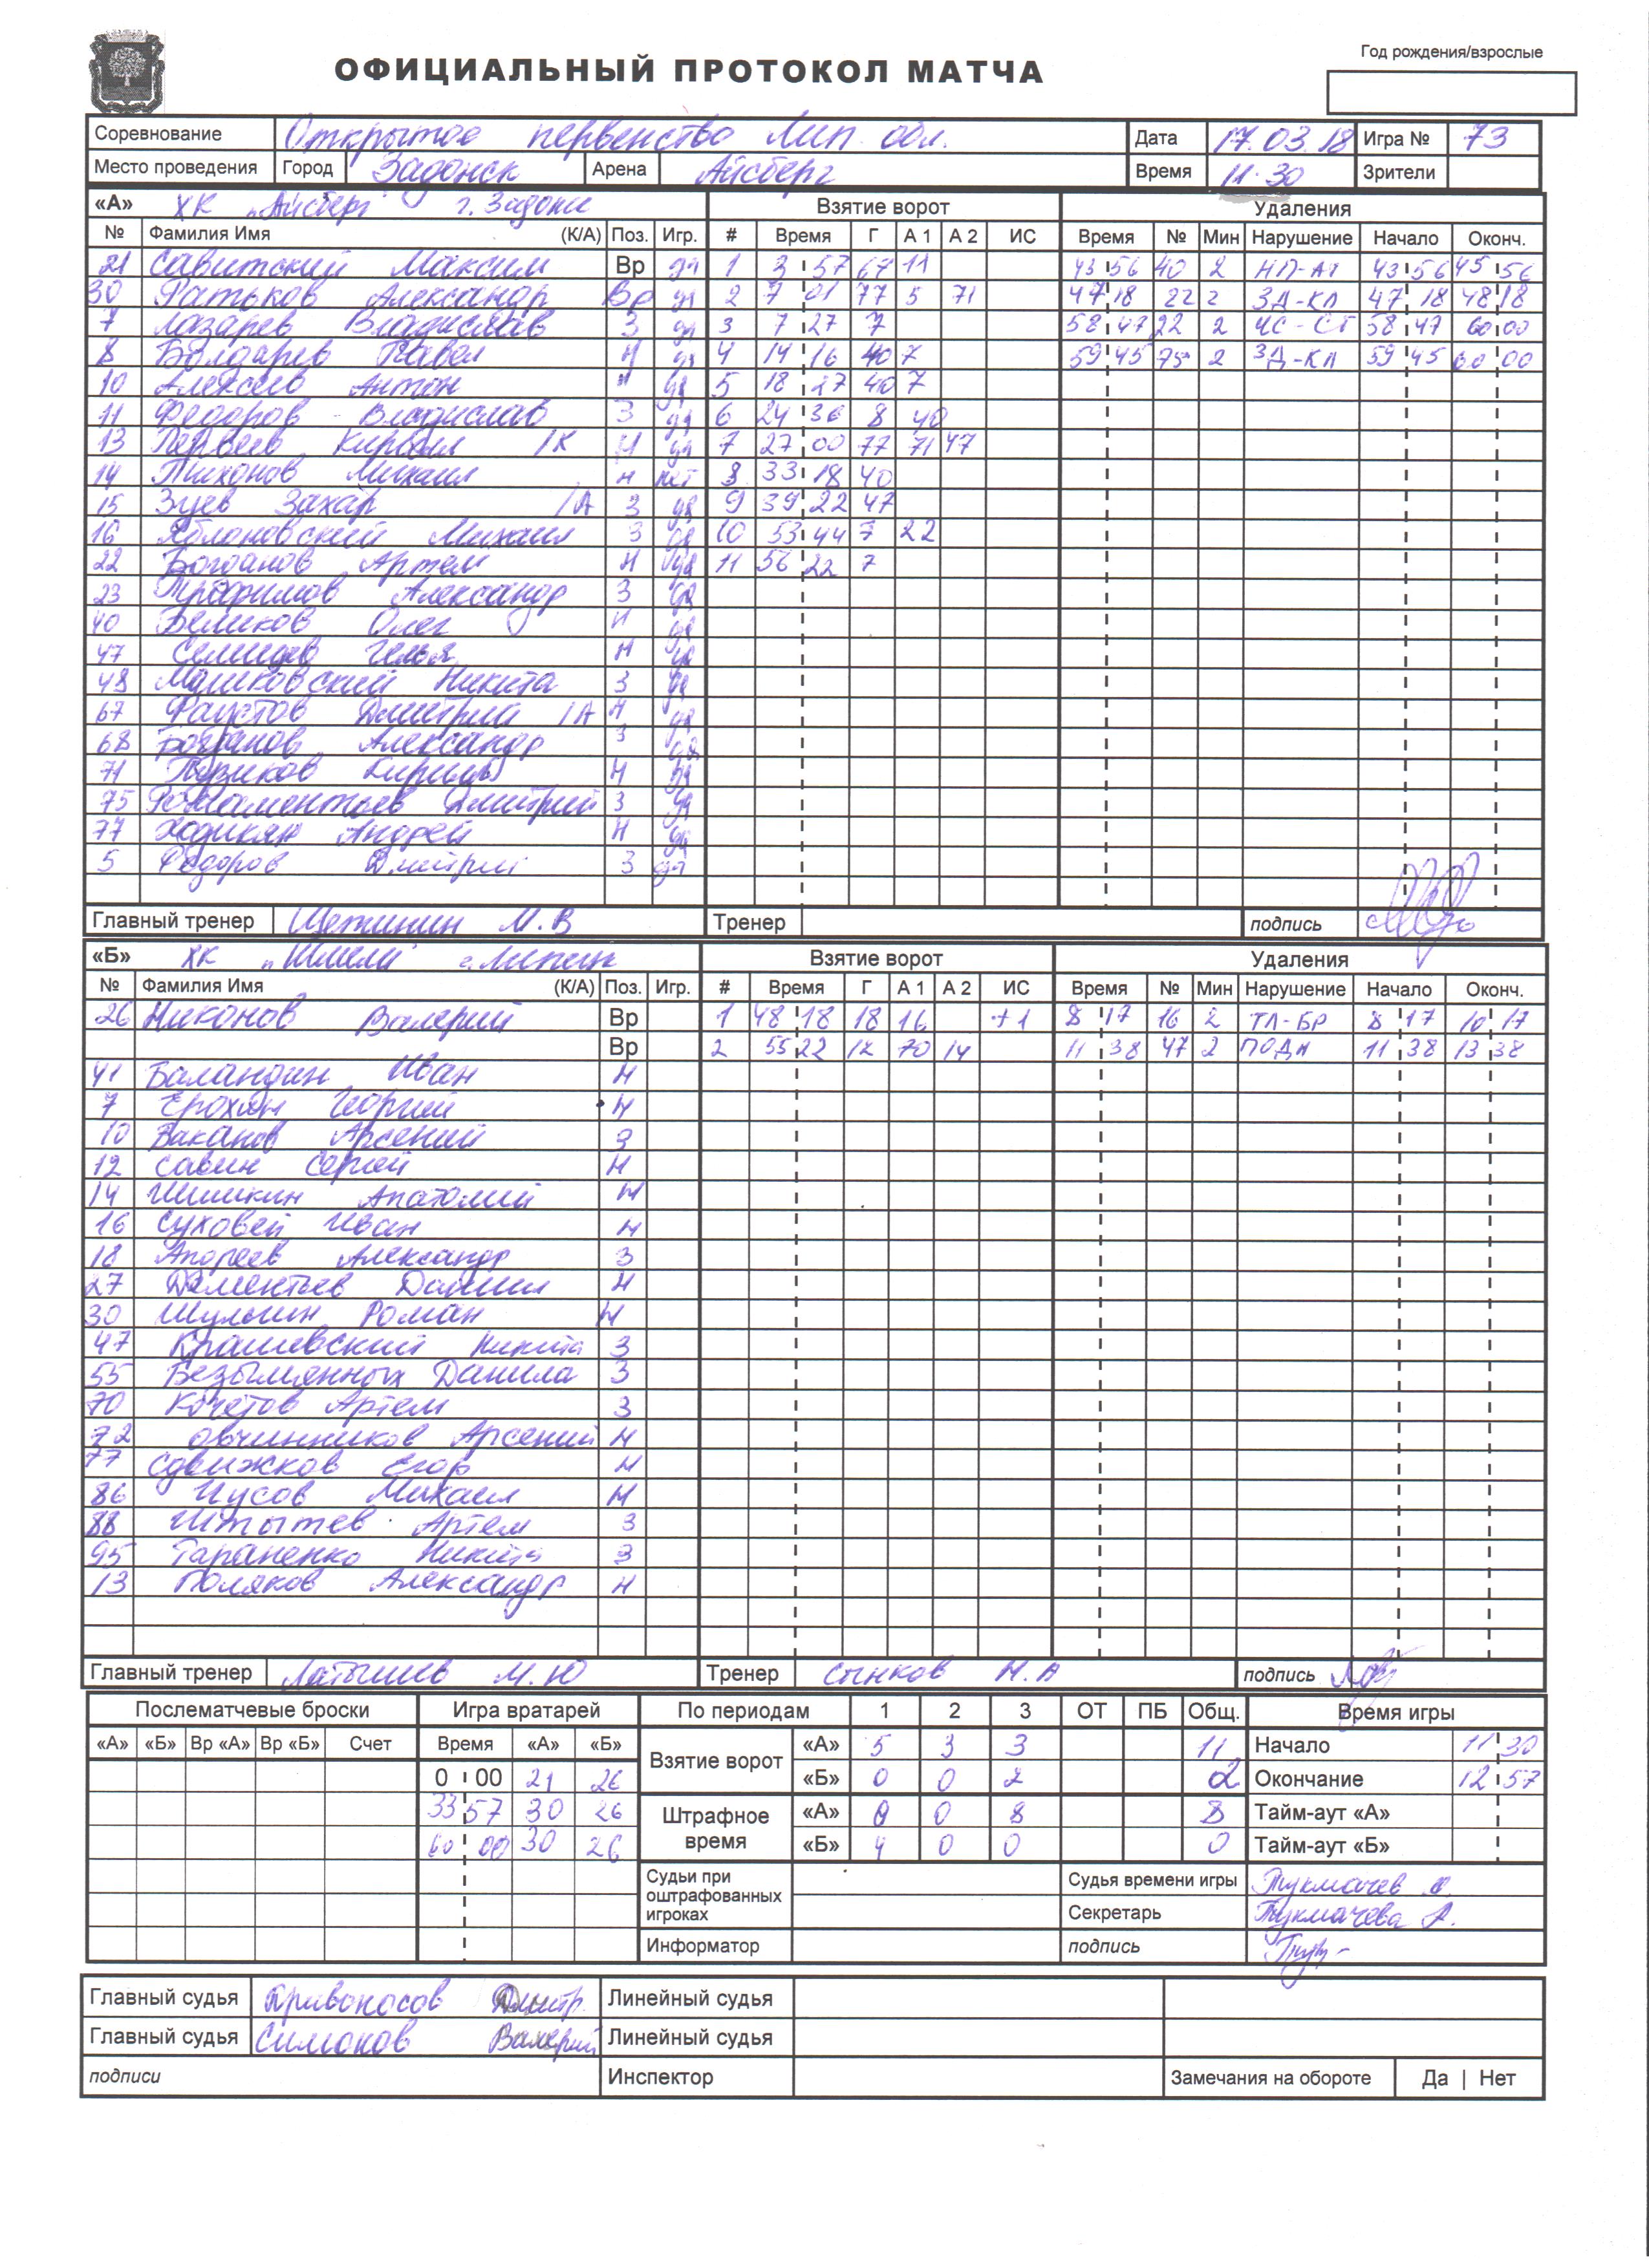 Год рождения/взрослые
ОФИЦИАЛЬНЫЙ ПРОТОКОЛ МАТЧА
Соревнование Открытое первенство Лип. обл. Дата 17.03.18 Игра № 73
Место проведения Город Задонск Арена Айсберг Время 11-30 Зрители
«А» ХК "Айсберг" г. Задонск Взятие ворот Удаления
№ Фамилия Имя (К/А) Поз. Игр. # Время Г А 1 А 2 ИС Время № Мин Нарушение Начало Оконч.
21 Савитский Максим Вр да 1 3 57 67 11 43 56 40 2 НП-АТ 43 56 45 56
30 Ратьков Александр Вр да 2 7 01 77 5 71 47 18 22 2 ЗД-КЛ 47 18 48 18
7 Лазарев Владислав З да 3 7 27 7 58 47 22 2 НС-СТ 58 47 60 00
8 Болдарев Павел Н да 4 14 16 40 7 59 45 75 2 ЗД-КЛ 59 45 60 00
10 Алексеев Антон Н да 5 18 27 40 7
11 Федоров Владислав З да 6 24 36 8 40
13 Первеев Кирилл /К Н да 7 27 00 77 71 47
14 Тихонов Михаил Н нет 8 33 18 40
15 Зуев Захар /А З да 9 39 22 47
16 Яблоновский Михаил З да 10 53 44 7 22
22 Богданов Артем Н да 11 56 22 7
23 Трофимов Александр З да
40 Беликов Олег Н да
47 Селищев Илья Н да
48 Машковский Никита З да
67 Фаустов Дмитрий /А Н да
68 Богданов Александр З да
71 Пузиков Кирилл Н да
75 Дмитрий З да
77 Ходикян Андрей Н да
5 Федоров Дмитрий З да
Главный тренер Щетинин М.В Тренер подпись
«Б» ХК "Шмели" г. Липецк Взятие ворот Удаления
№ Фамилия Имя (К/А) Поз. Игр. # Время Г А 1 А 2 ИС Время № Мин Нарушение Начало Оконч.
26 Никонов Валерий Вр 1 48 18 18 16 +1 8 17 16 2 ТЛ-БР 8 17 10 17
Вр 2 55 22 12 70 14 11 38 47 2 ПОДН 11 38 13 38
41 Баландин Иван Н
7 Ерохин Георгий Н
10 Ваканов Арсений З
12 Савин Сергей Н
14 Шишкин Анатолий Н
16 Суховей Иван Н
18 Андреев Александр З
27 Дементьев Даниил Н
30 Шульгин Роман Н
47 Крашевский Никита З
55 Безымянных Данила З
70 Кочетов Артем З
72 Овчинников Арсений Н
77 Сдвижков Егор Н
86 Чусов Михаил Н
88 Штытев Артем З
95 Тараненко Никита З
13 Поляков Александр Н
Главный тренер Латышев М.Ю Тренер Сынков Н.А подпись
Послематчевые броски Игра вратарей По периодам 1 2 3 ОТ ПБ Общ. Время игры
«А» «Б» Вр «А» Вр «Б» Счет Время «А» «Б» Взятие ворот «А» 5 3 3 11 Начало 11 30
0 00 21 26 «Б» 0 0 2 2 Окончание 12 57
33 57 30 26 Штрафное время «А» 0 0 8 8 Тайм-аут «А»
60 00 30 26 «Б» 4 0 0 0 Тайм-аут «Б»
Судьи при оштрафованных игроках Судья времени игры Тукмачев
Секретарь Тукмачева А.
Информатор подпись
Главный судья Кривоносов Дмитр. Линейный судья
Главный судья Симонов Валерий Линейный судья
подписи Инспектор Замечания на обороте Да | Нет